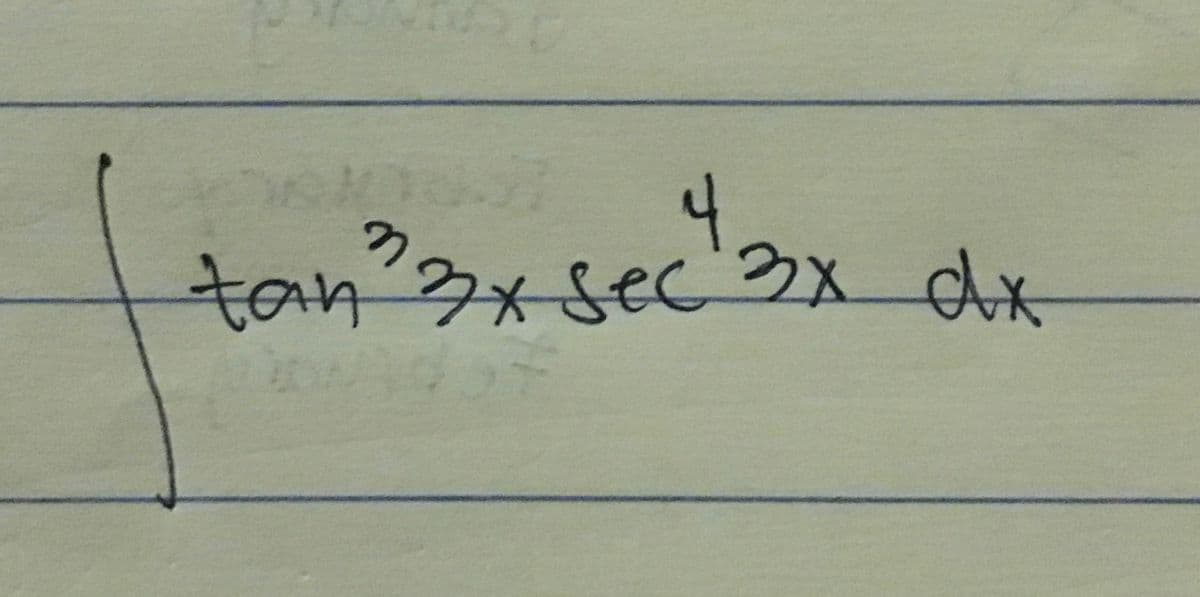 ∫ tan³ 3x sec⁴ 3x dx